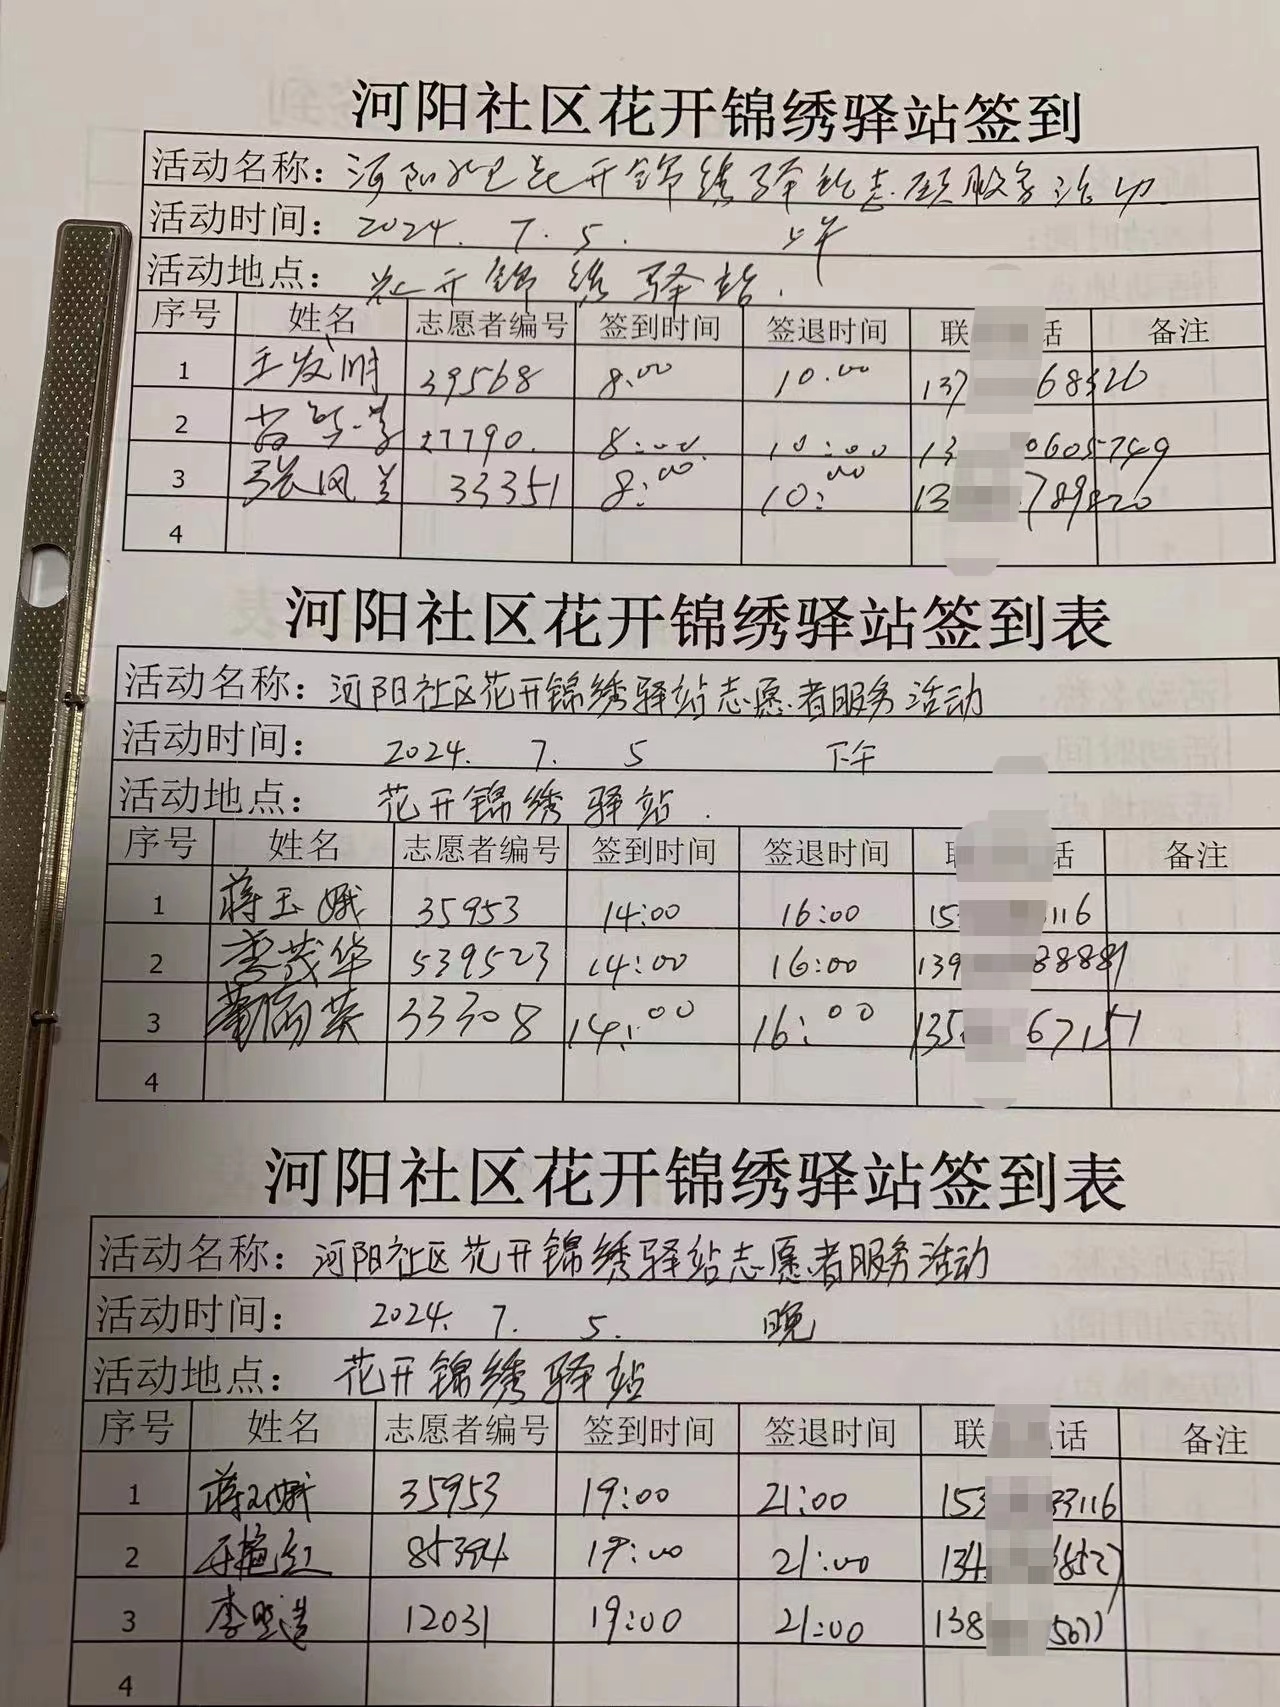 河阳社区花开锦绣驿站签到
活动名称：河阳社区花开锦绣驿站志愿服务活动
活动时间：2024. 7. 5. 上午
活动地点：花开锦绣驿站.
序号 姓名 志愿者编号 签到时间 签退时间 联 话 备注
1 王发明 39568 8:00 10.00 137 68526
2 27790. 8:00. 10:00 13 0605749
3 张凤兰 33351 8:00 10:00 13 789820
4
河阳社区花开锦绣驿站签到表
活动名称：河阳社区花开锦绣驿站志愿者服务活动
活动时间： 2024. 7. 5 下午
活动地点： 花开锦绣驿站.
序号 姓名 志愿者编号 签到时间 签退时间 联 话 备注
1 蒋玉娥 35953 14:00 16:00 15 116
2 李茂华 539523 14:00 16:00 139 88881
3 33308 14:00 16:00 135 67151
4
河阳社区花开锦绣驿站签到表
活动名称：河阳社区花开锦绣驿站志愿者服务活动
活动时间： 2024. 7. 5. 晚
活动地点： 花开锦绣驿站
序号 姓名 志愿者编号 签到时间 签退时间 联 话 备注
1 蒋玉娥 35953 19:00 21:00 153 33116
2 85394 19:00 21:00 134 8527
3 12031 19:00 21:00 138 5677
4